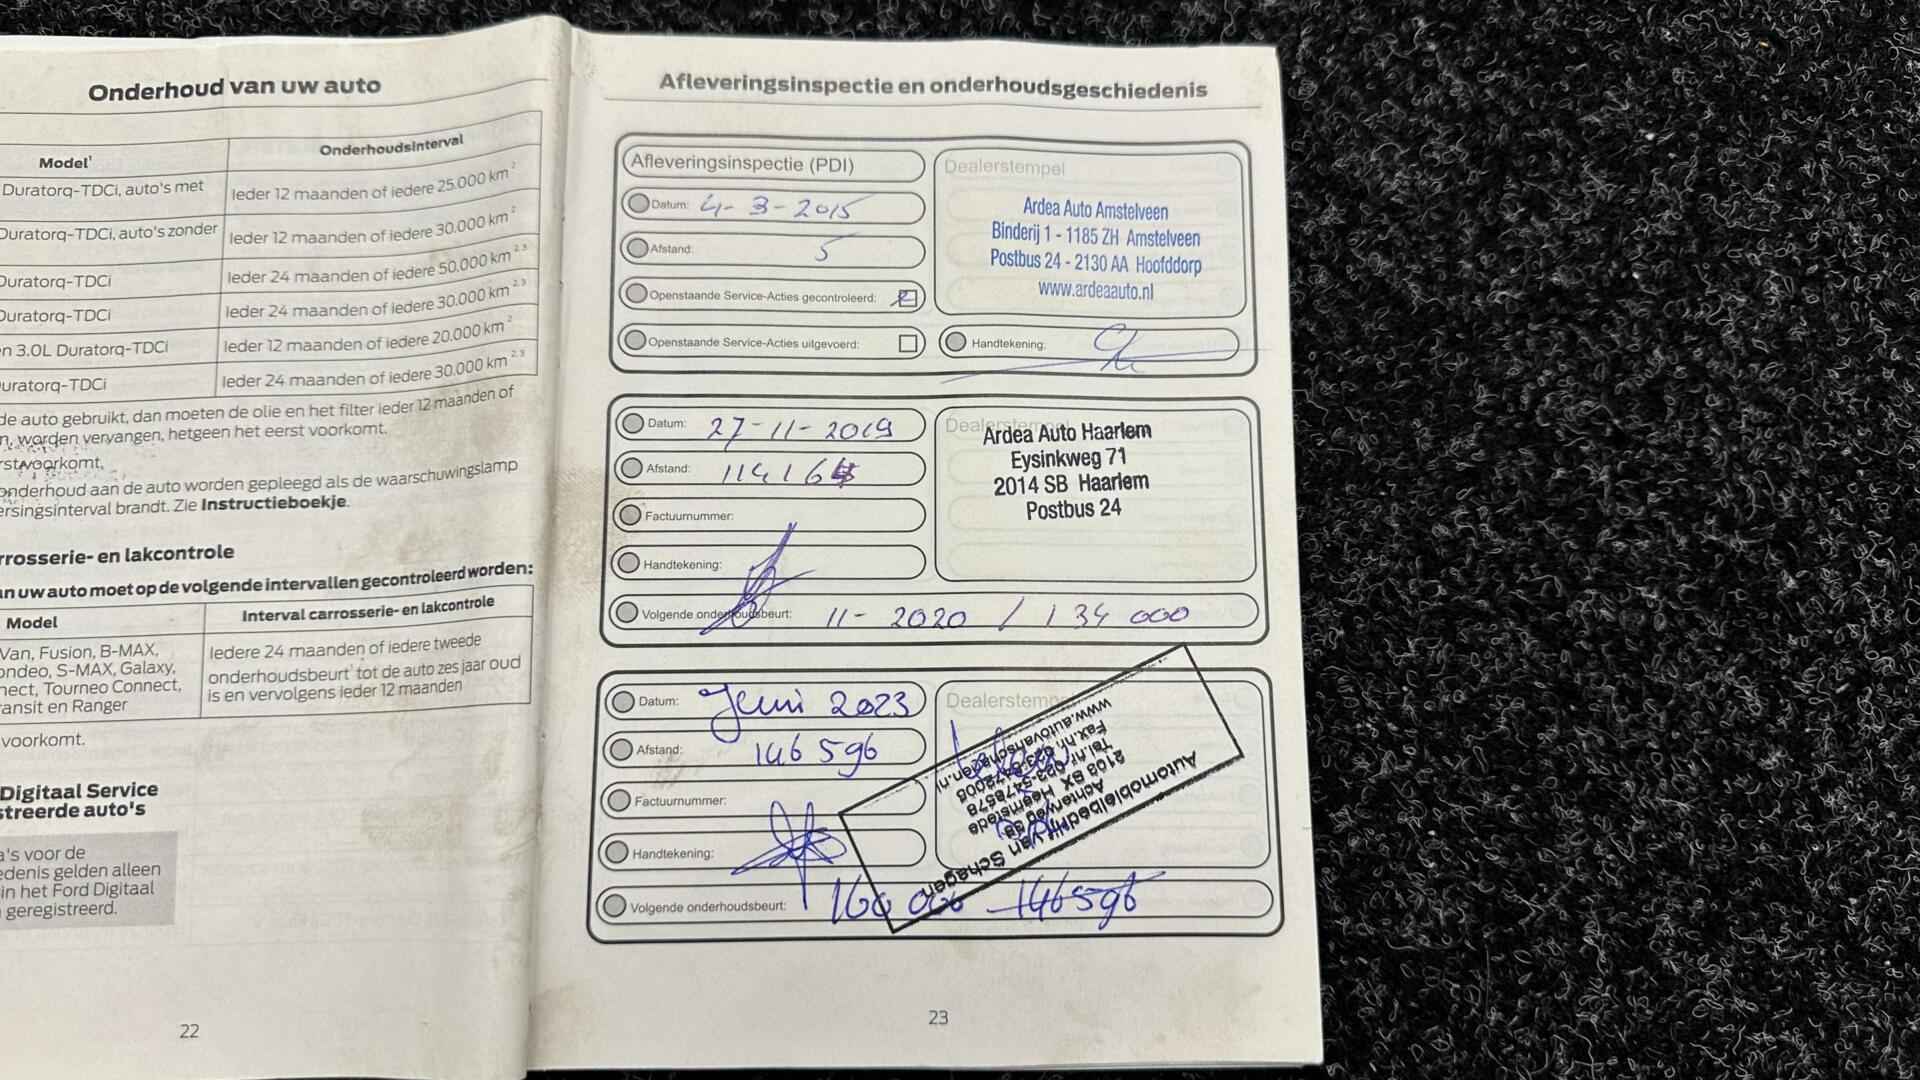 Onderhoud van uw auto
Model¹
Onderhoudsinterval
Duratorq-TDCi, auto's met
Ieder 12 maanden of iedere 25.000 km ²
Duratorq-TDCi, auto's zonder
Ieder 12 maanden of iedere 30.000 km ²
Duratorq-TDCi
Ieder 24 maanden of iedere 50.000 km ²˒³
Duratorq-TDCi
Ieder 24 maanden of iedere 30.000 km ²˒³
en 3.0L Duratorq-TDCi
Ieder 12 maanden of iedere 20.000 km ²
Duratorq-TDCi
Ieder 24 maanden of iedere 30.000 km ²˒³
de auto gebruikt, dan moeten de olie en het filter ieder 12 maanden of
n, worden vervangen, hetgeen het eerst voorkomt.
rst voorkomt,
onderhoud aan de auto worden gepleegd als de waarschuwingslamp
ersingsinterval brandt. Zie Instructieboekje.
rrosserie- en lakcontrole
an uw auto moet op de volgende intervallen gecontroleerd worden:
Model
Interval carrosserie- en lakcontrole
Van, Fusion, B-MAX,
ondeo, S-MAX, Galaxy,
nect, Tourneo Connect,
ansit en Ranger
Iedere 24 maanden of iedere tweede
onderhoudsbeurt¹ tot de auto zes jaar oud
is en vervolgens ieder 12 maanden
voorkomt.
Digitaal Service
streerde auto's
a's voor de
edenis gelden alleen
in het Ford Digitaal
geregistreerd.
22
Afleveringsinspectie en onderhoudsgeschiedenis
Afleveringsinspectie (PDI)
Datum: 4-3-2015
Afstand: 5
Openstaande Service-Acties gecontroleerd:
Openstaande Service-Acties uitgevoerd:
Dealerstempel
Ardea Auto Amstelveen
Binderij 1 - 1185 ZH Amstelveen
Postbus 24 - 2130 AA Hoofddorp
www.ardeaauto.nl
Handtekening:
Datum: 27-11-2019
Afstand: 114164
Factuurnummer:
Handtekening:
Dealerstempel
Ardea Auto Haarlem
Eysinkweg 71
2014 SB Haarlem
Postbus 24
Volgende onderhoudsbeurt: 11-2020 / 134 000
Datum: Juni 2023
Afstand: 146 596
Factuurnummer:
Handtekening:
Dealerstempel
Automobielbedrijf van Schagen
Achterweg
2103 SX Heemstede
Tel.nr. 023-
Fax.nr. 023-
www.autovanschagen.nl
Volgende onderhoudsbeurt: 160 000 146596
23